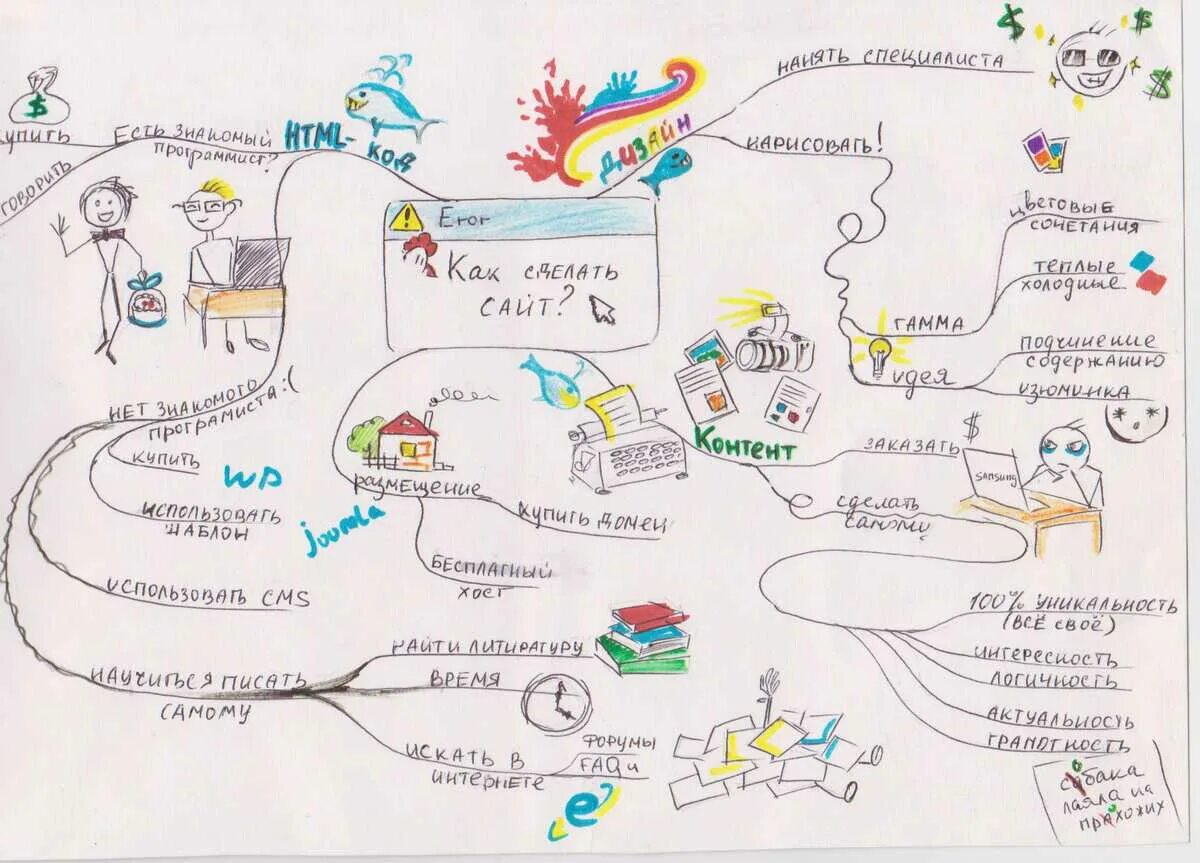 Eror
Как сделать
сайт?
HTML-
код
Есть знакомый
программист?
купить
говорить
$
нет знакомого
програмиста:(
купить
WP
использовать
шаблон
Joomla
использовать CMS
научиться писать
самому
найти литиратуру
время
искать в
интернете
форумы
FAQи
e
Дизайн
нанять специалиста
$
$
$
нарисовать!
гамма
цветовые
сочетания
теплые
холодные
идея
подчинение
содержанию
изюминка
размещение
купить домен
бесплатный
хост
Контент
заказать
$
SAMSUNG
сделать
самому
100% уникальность
(всё своё)
интересность
логичность
актуальность
грамотность
собака
лаяла на
прохожих